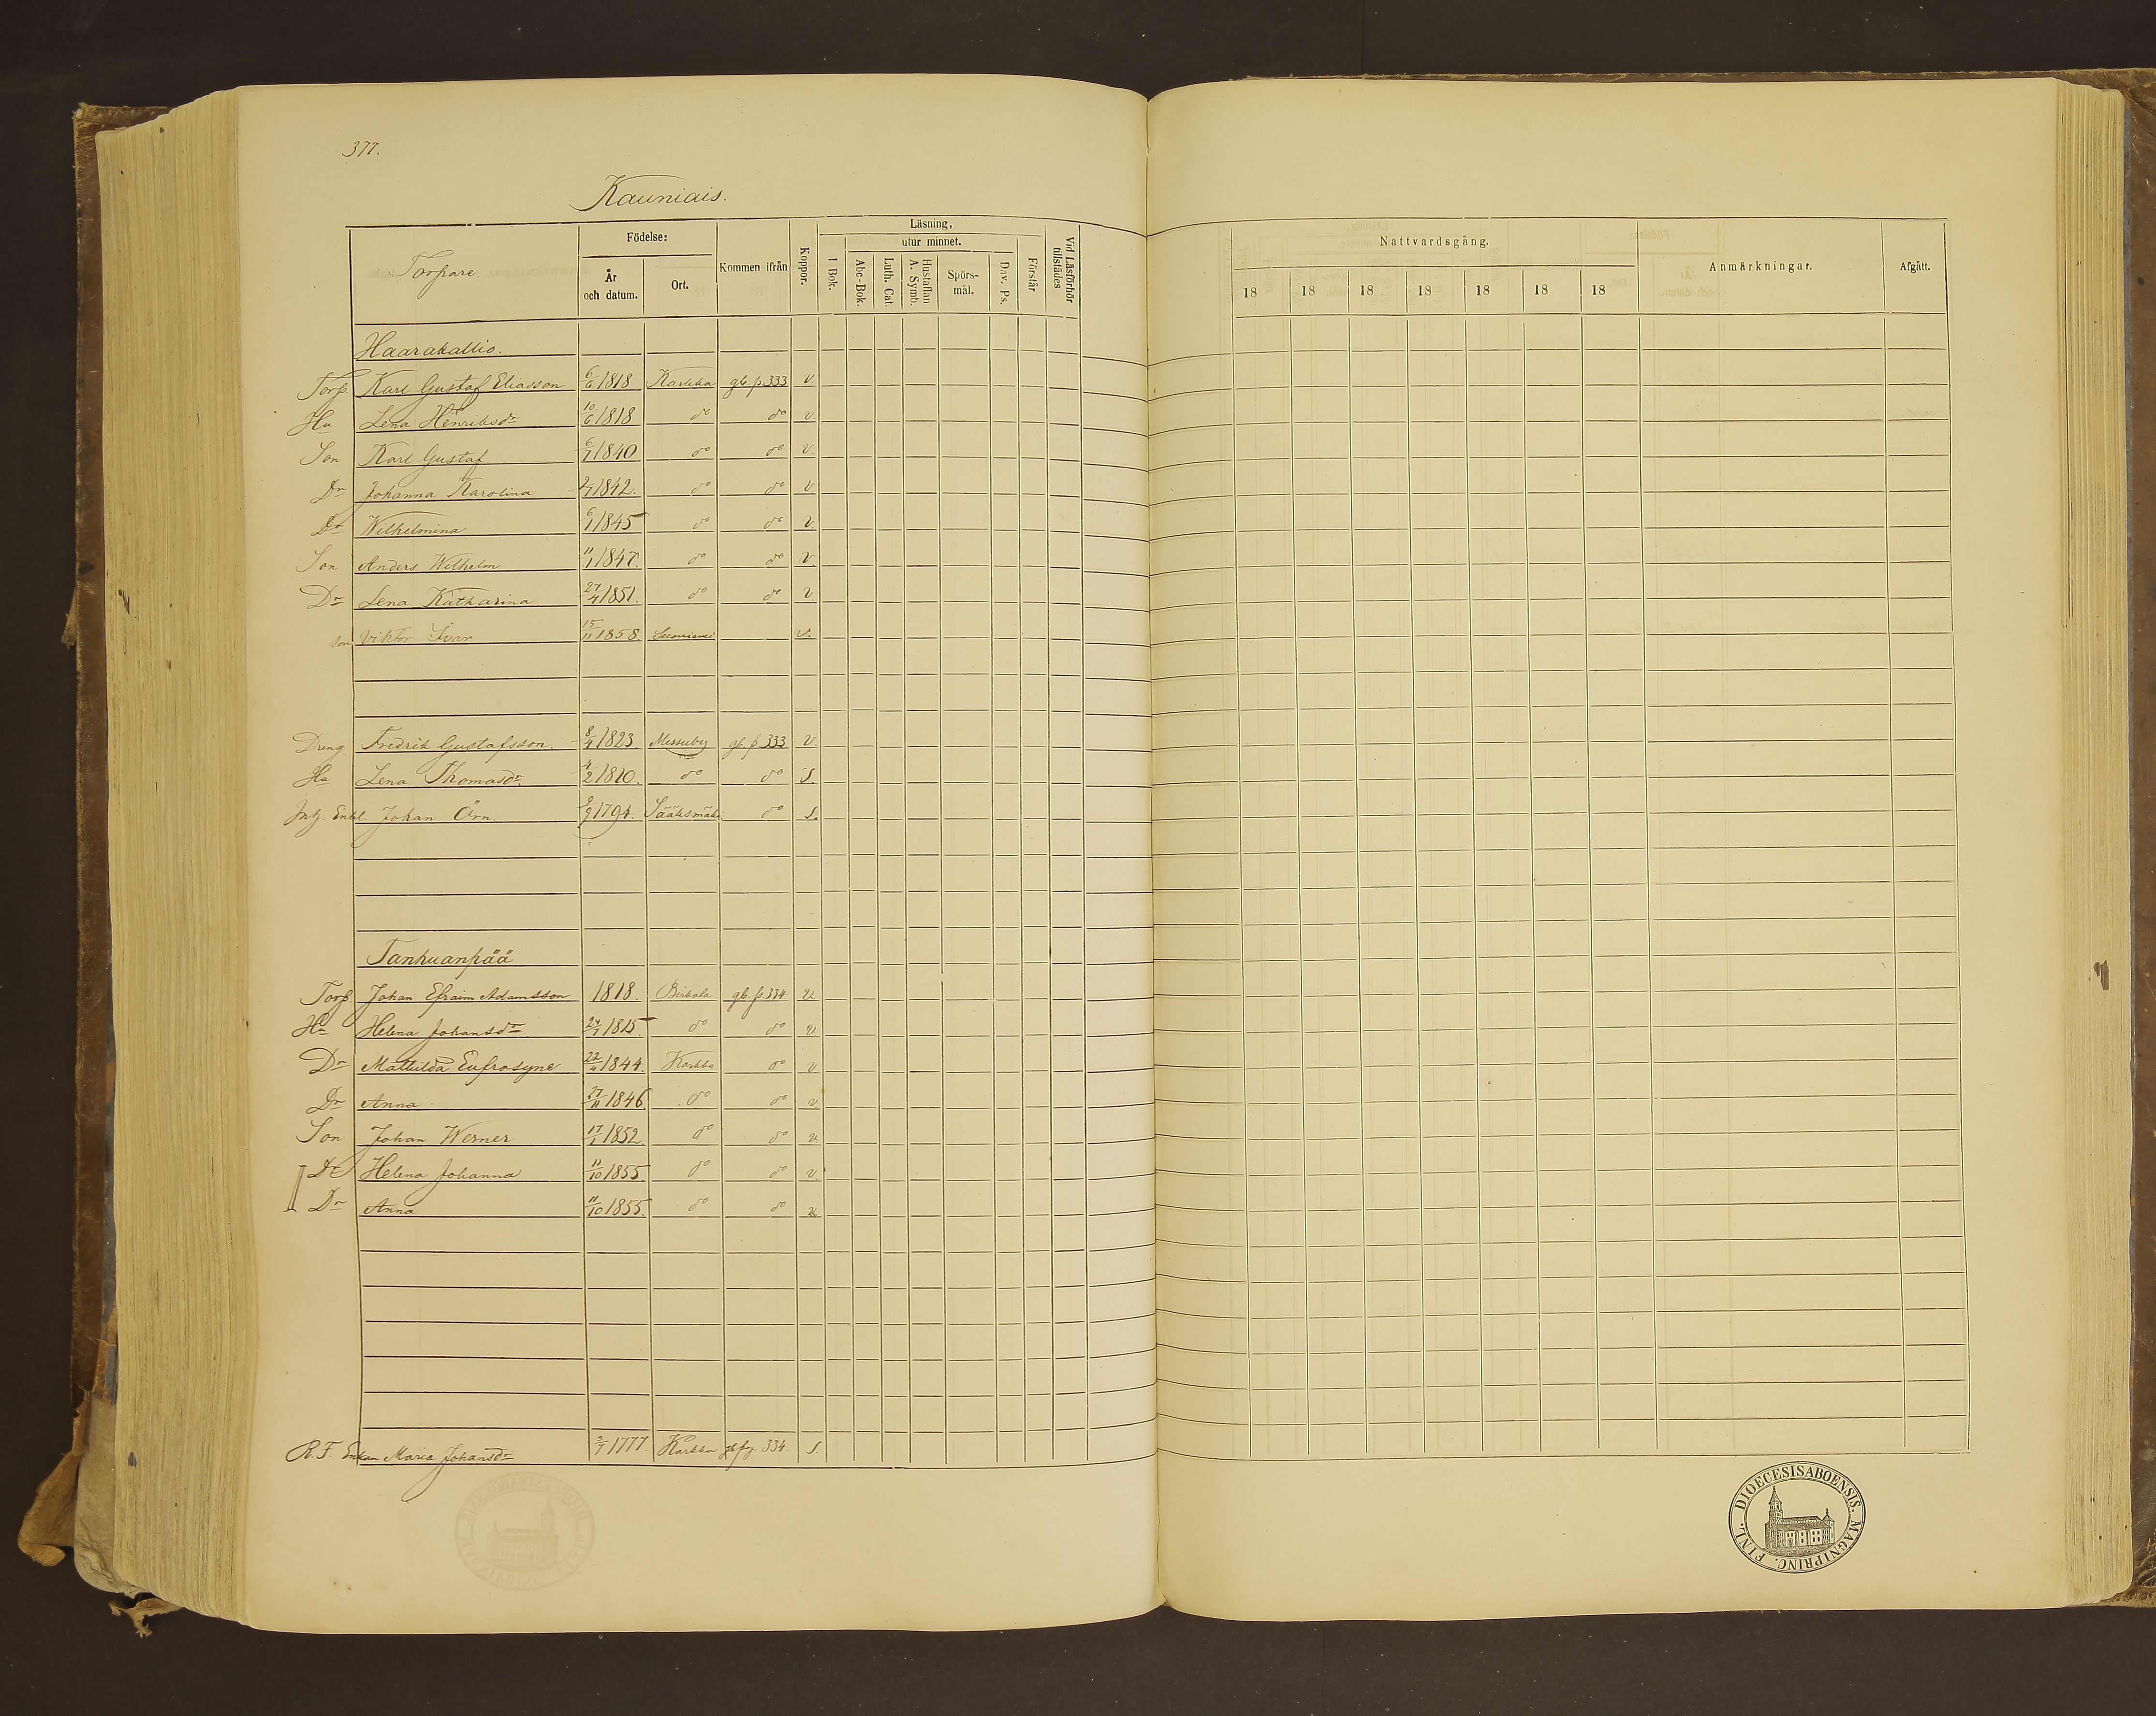 377.
Kauniais.
Torpare.
Födelse:
År och datum.
Ort.
Kommen ifrån
Koppor.
Läsning,
utur minnet.
I Bok.
Abc-Bok.
Luth. Cat.
Hustaflan A. Symb.
Spörs-mål.
Dav. Ps.
Förstår
Vid Läsförhör tillstädes
Nattvardsgång.
18 18 18 18 18 18 18
Anmärkningar.
Afgått.
Haarakallio.
Torp. Karl Gustaf Eliasson 6/6 1818 Karkku gb. p. 333 v.
Hu Lena Henriksdr 10/6 1818 do do v.
Son Karl Gustaf 6/7 1840 do do v.
Dr Johanna Karolina 1842. do do v.
Dr Wilhelmina 6/1 1845 do do v.
Son Anders Wilhelm 11/1 1847. do do v.
Dr Lena Katharina 27/4 1851. do do v.
son Viktor Ivar 15/11 1858 Suoniemi v.
Dreng Fredrik Gustafsson. 8/4 1823 Messuby gb. p 333 v.
Hu Lena Thomasdr 4/2 1810. do do s.
Inh. Enkl. Johan Örn. 1794. Sääksmäki do s.
Tanhuanpää
Torp. Johan Efraim Adamsson 1818. Birkala gb. p 334. v.
Hu Helena Johansdr 1815 do do v
Dr Mathilda Eufrosyne 22/4 1844. Karkku do v
Dr Anna 27/11 1846 do do v.
Son Johan Werner 17/1 1852. do do v.
Dr Helena Johanna 11/10 1855. do do v.
Dr Anna 11/10 1855. do do v.
R. F. Enkan Maria Johansdr 1777 Karkku gb pg. 334. s.
DIOECESIS ABOENSIS. MAGNI PRINC. FINL.